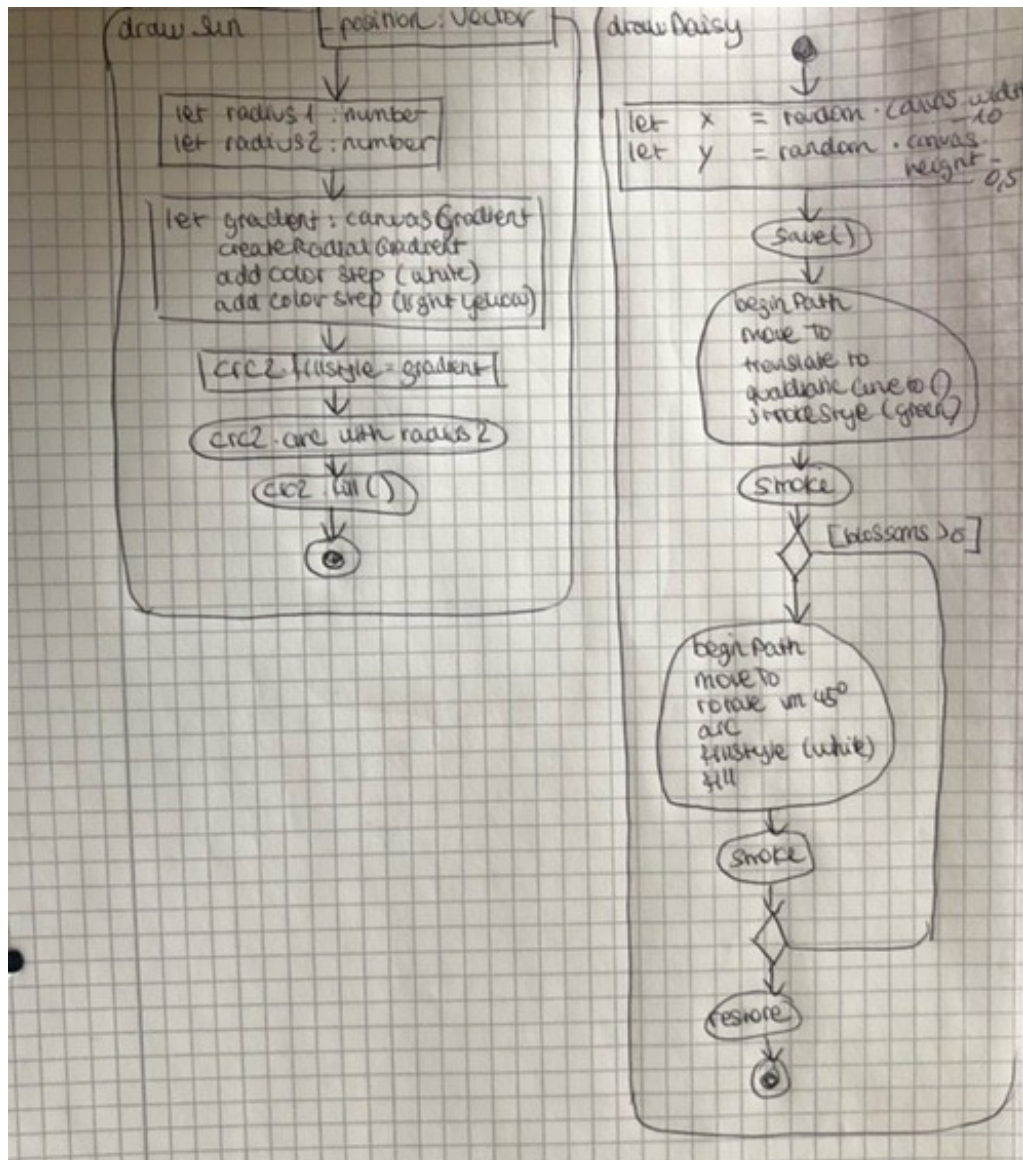 draw Sun
position: Vector
let radius1 : number
let radius2 : number
let gradient : canvasGradient
createRadialGradient
add color step (white)
add color step (light yellow)
crc2.fillstyle = gradient
crc2.arc with radius2
crc2.fill()
draw Daisy
let x = random · canvas.width
- 10
let y = random · canvas.
height -
0,5
save()
begin Path
move To
translate to
quadratic curve to ()
stroke style (green)
stroke
[blossoms > 5]
begin Path
move To
rotate um 45°
arc
fillstyle (white)
fill
stroke
restore